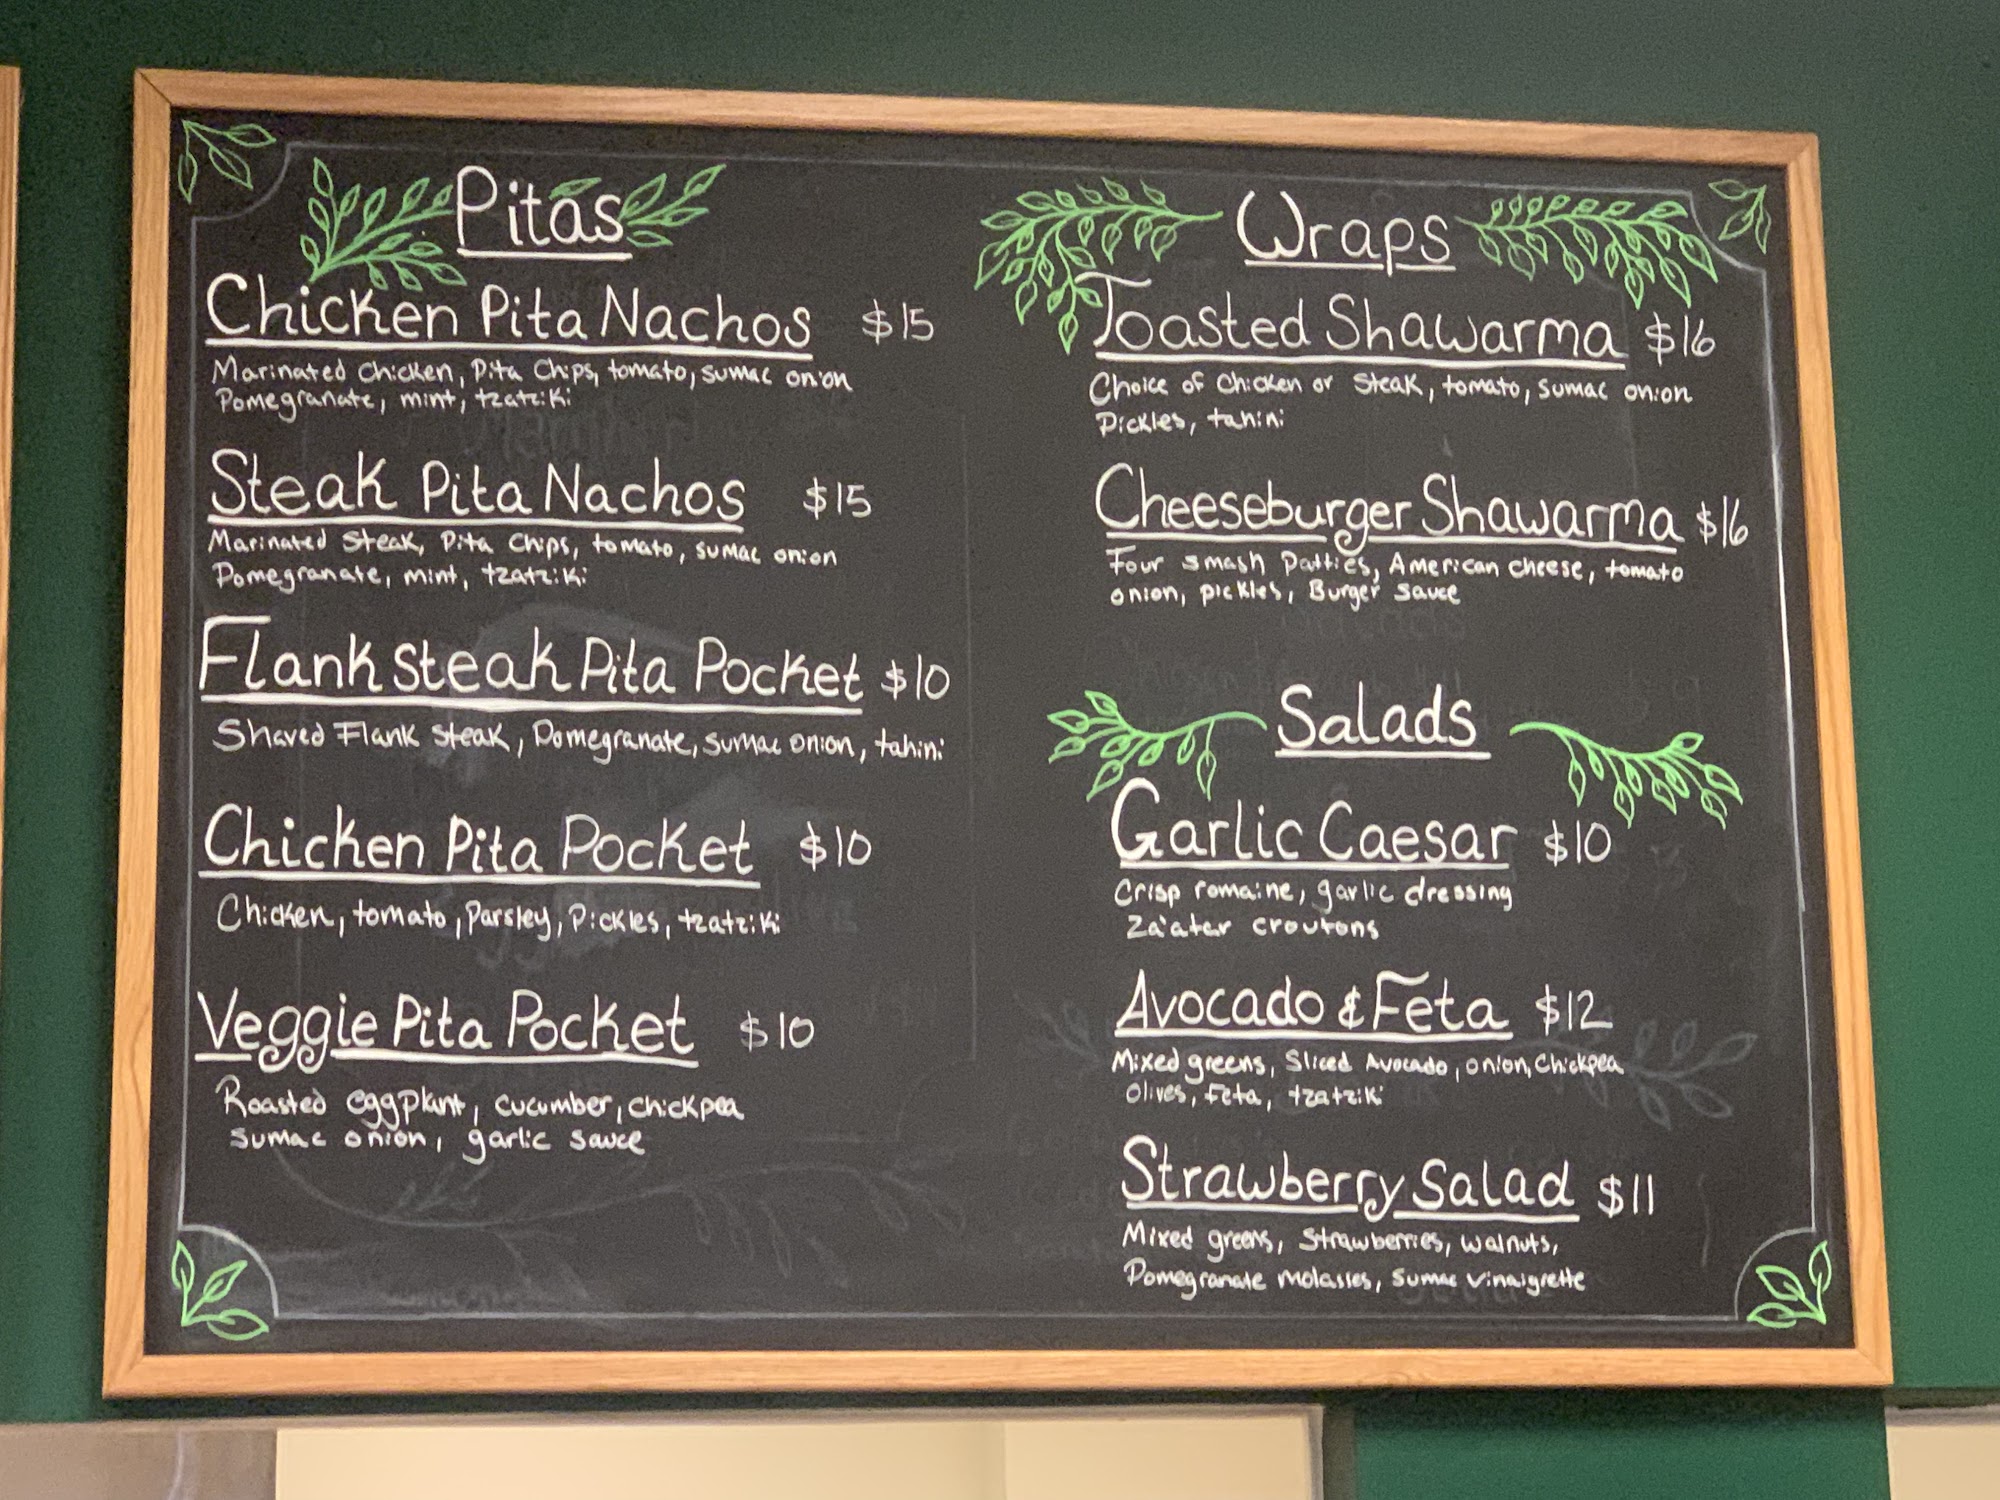 Pitas
Chicken Pita Nachos $15
Marinated Chicken, Pita Chips, tomato, sumac onion
Pomegranate, mint, tzatziki
Steak Pita Nachos $15
Marinated Steak, Pita Chips, tomato, sumac onion
Pomegranate, mint, tzatziki
Flank steak Pita Pocket $10
Shaved Flank steak, Pomegranate, sumac onion, tahini
Chicken Pita Pocket $10
Chicken, tomato, Parsley, Pickles, tzatziki
Veggie Pita Pocket $10
Roasted eggplant, cucumber, chickpea
sumac onion, garlic sauce
Wraps
Toasted Shawarma $16
Choice of Chicken or Steak, tomato, sumac onion
Pickles, tahini
Cheeseburger Shawarma $16
Four smash Patties, American cheese, tomato
onion, pickles, Burger sauce
Salads
Garlic Caesar $10
Crisp romaine, garlic dressing
Za'atar croutons
Avocado & Feta $12
Mixed greens, Sliced Avocado, onion, Chickpea
Olives, Feta, tzatziki
Strawberry Salad $11
Mixed greens, Strawberries, walnuts,
Pomegranate Molasses, sumac vinaigrette